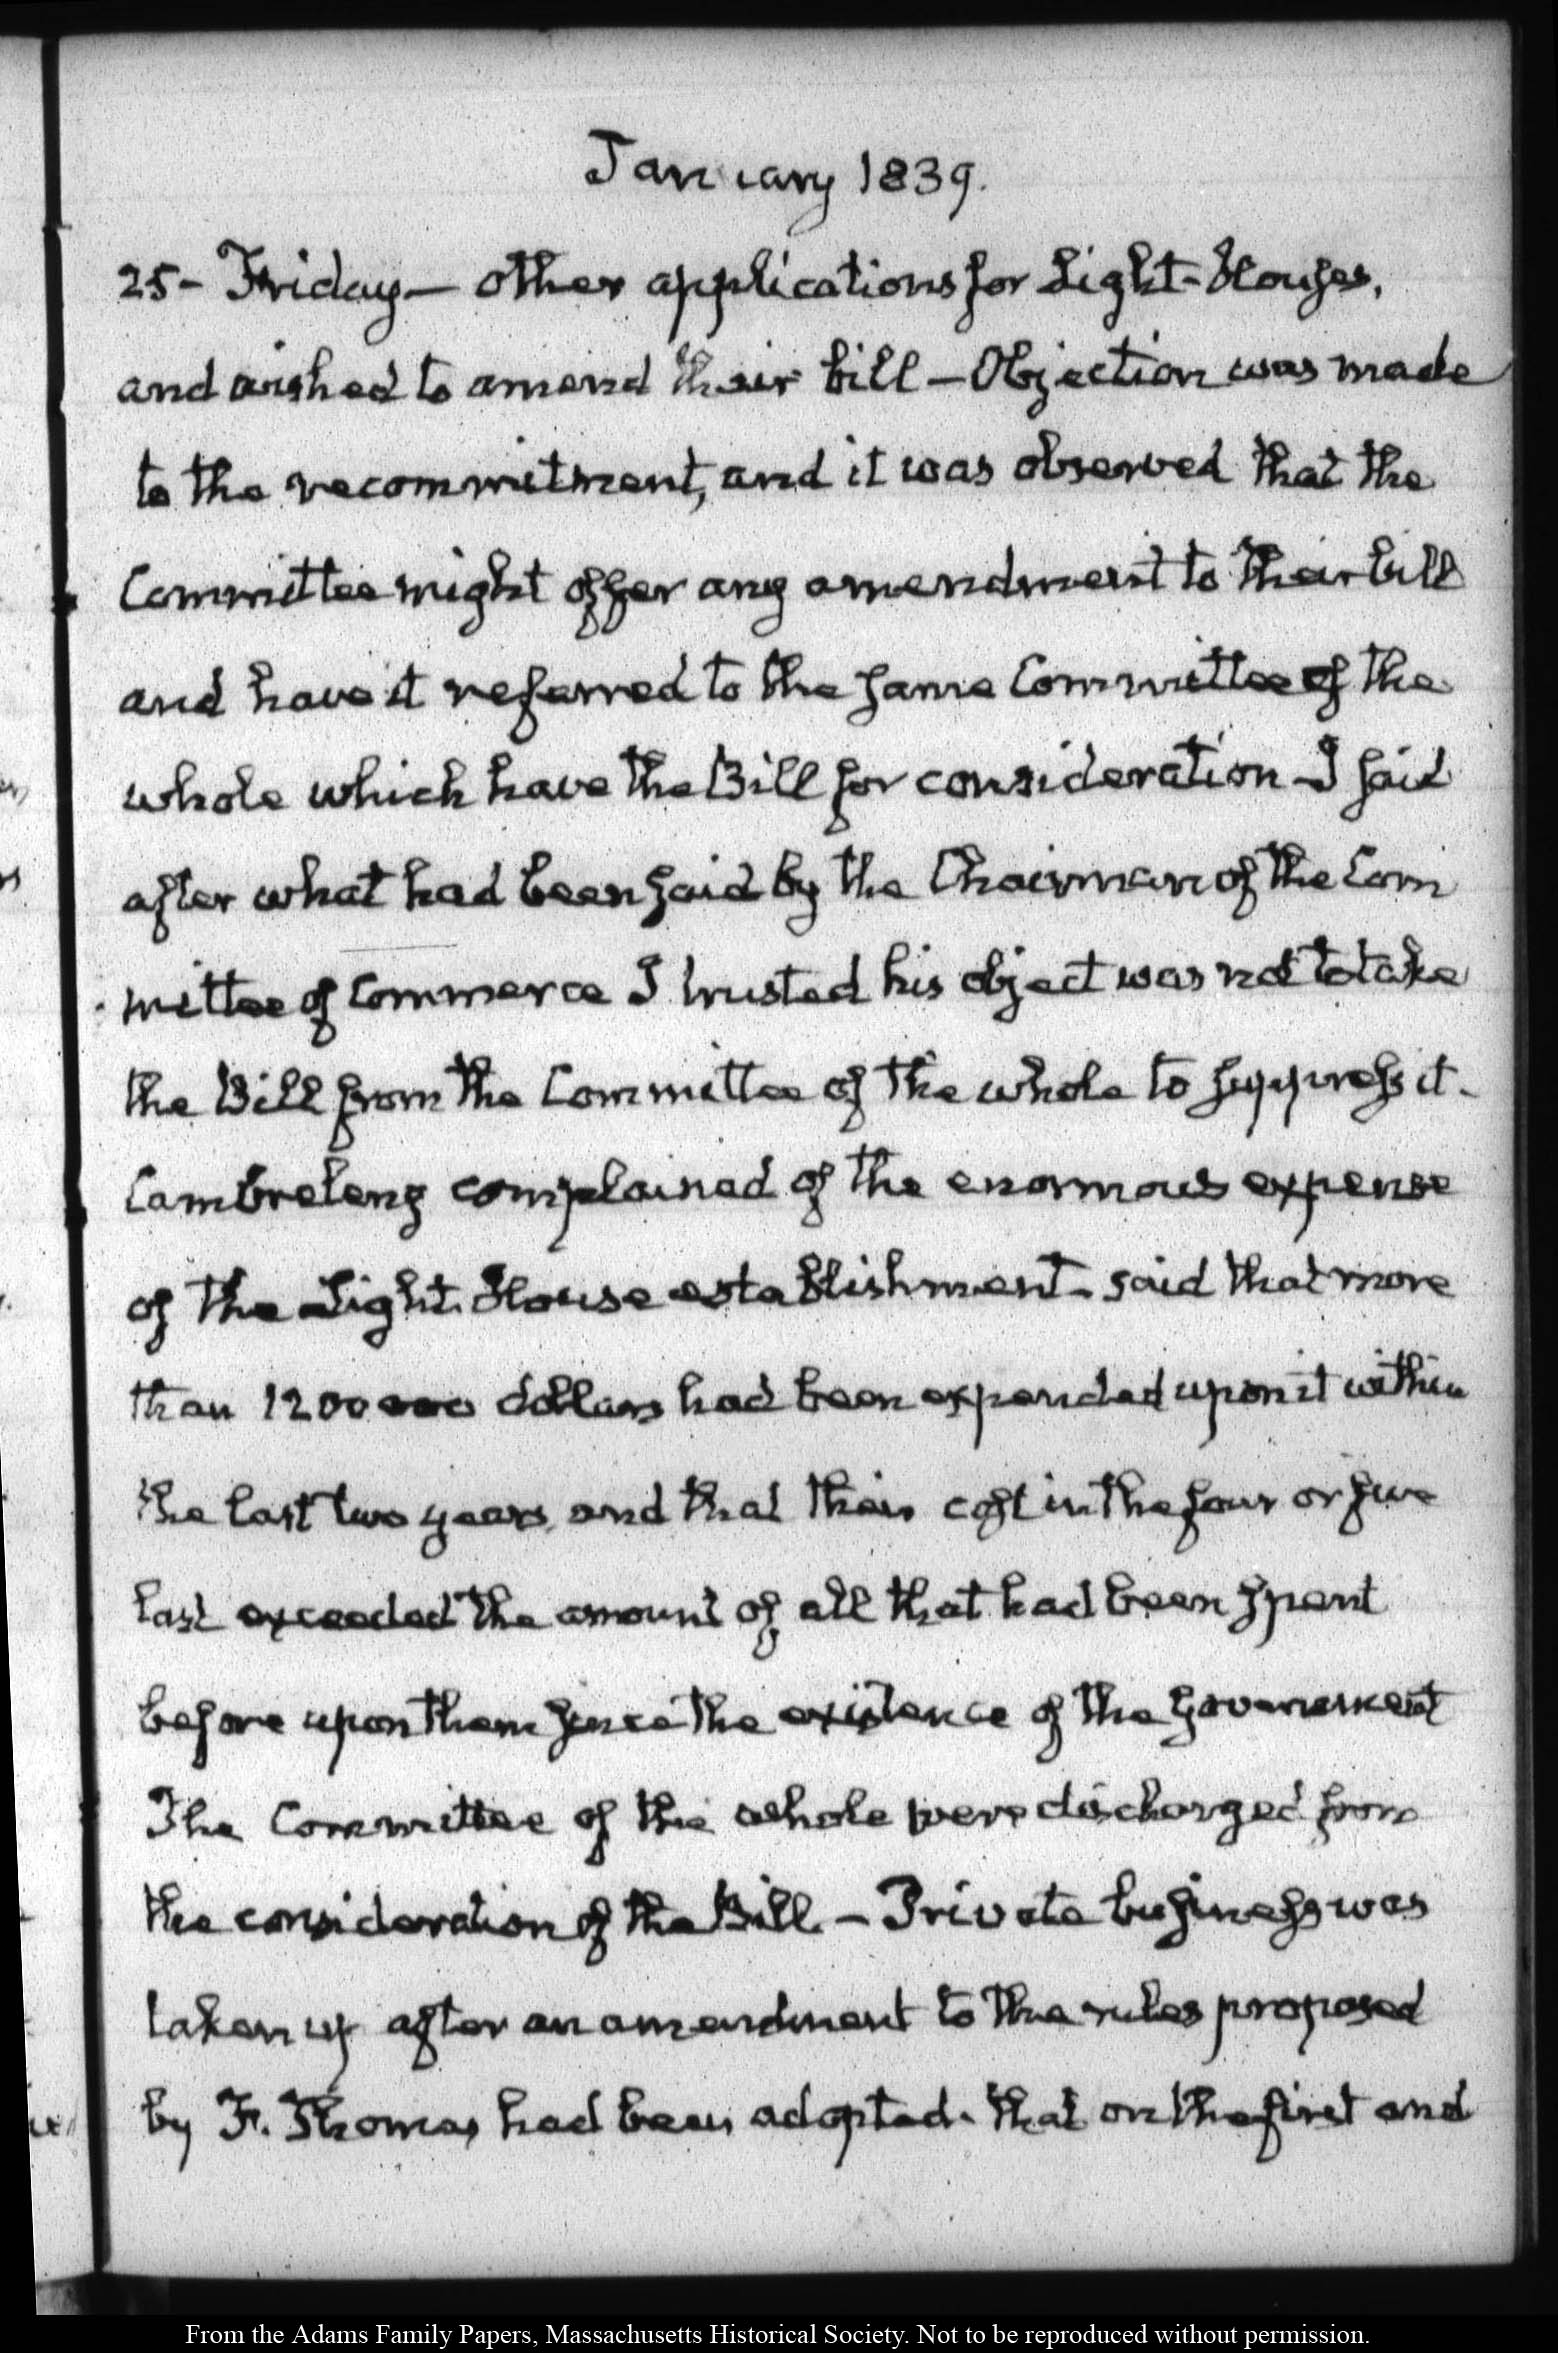 January 1839.
25 - Friday — other applications for Light-Houses,
and wished to amend their bill — Objection was made
to the recommitment, and it was observed that the
Committee might offer any amendment to their bill
and have it referred to the same Committee of the
whole which have the Bill for consideration — I said
after what had been said by the Chairman of the Com
mittee of Commerce I trusted his object was not to take
the Bill from the Committee of the whole to suppress it.
Cambreleng complained of the enormous expense
of the Light-House establishment. said that more
than 1200000 dollars had been expended upon it within
the last two years, and that their cost in the four or five
last exceeded the amount of all that had been spent
before upon them since the existence of the Government
The Committee of the whole were discharged from
the consideration of the Bill. — Private business was
taken up after an amendment to the rules proposed
by F. Thomas had been adopted. that on the first and
From the Adams Family Papers, Massachusetts Historical Society. Not to be reproduced without permission.